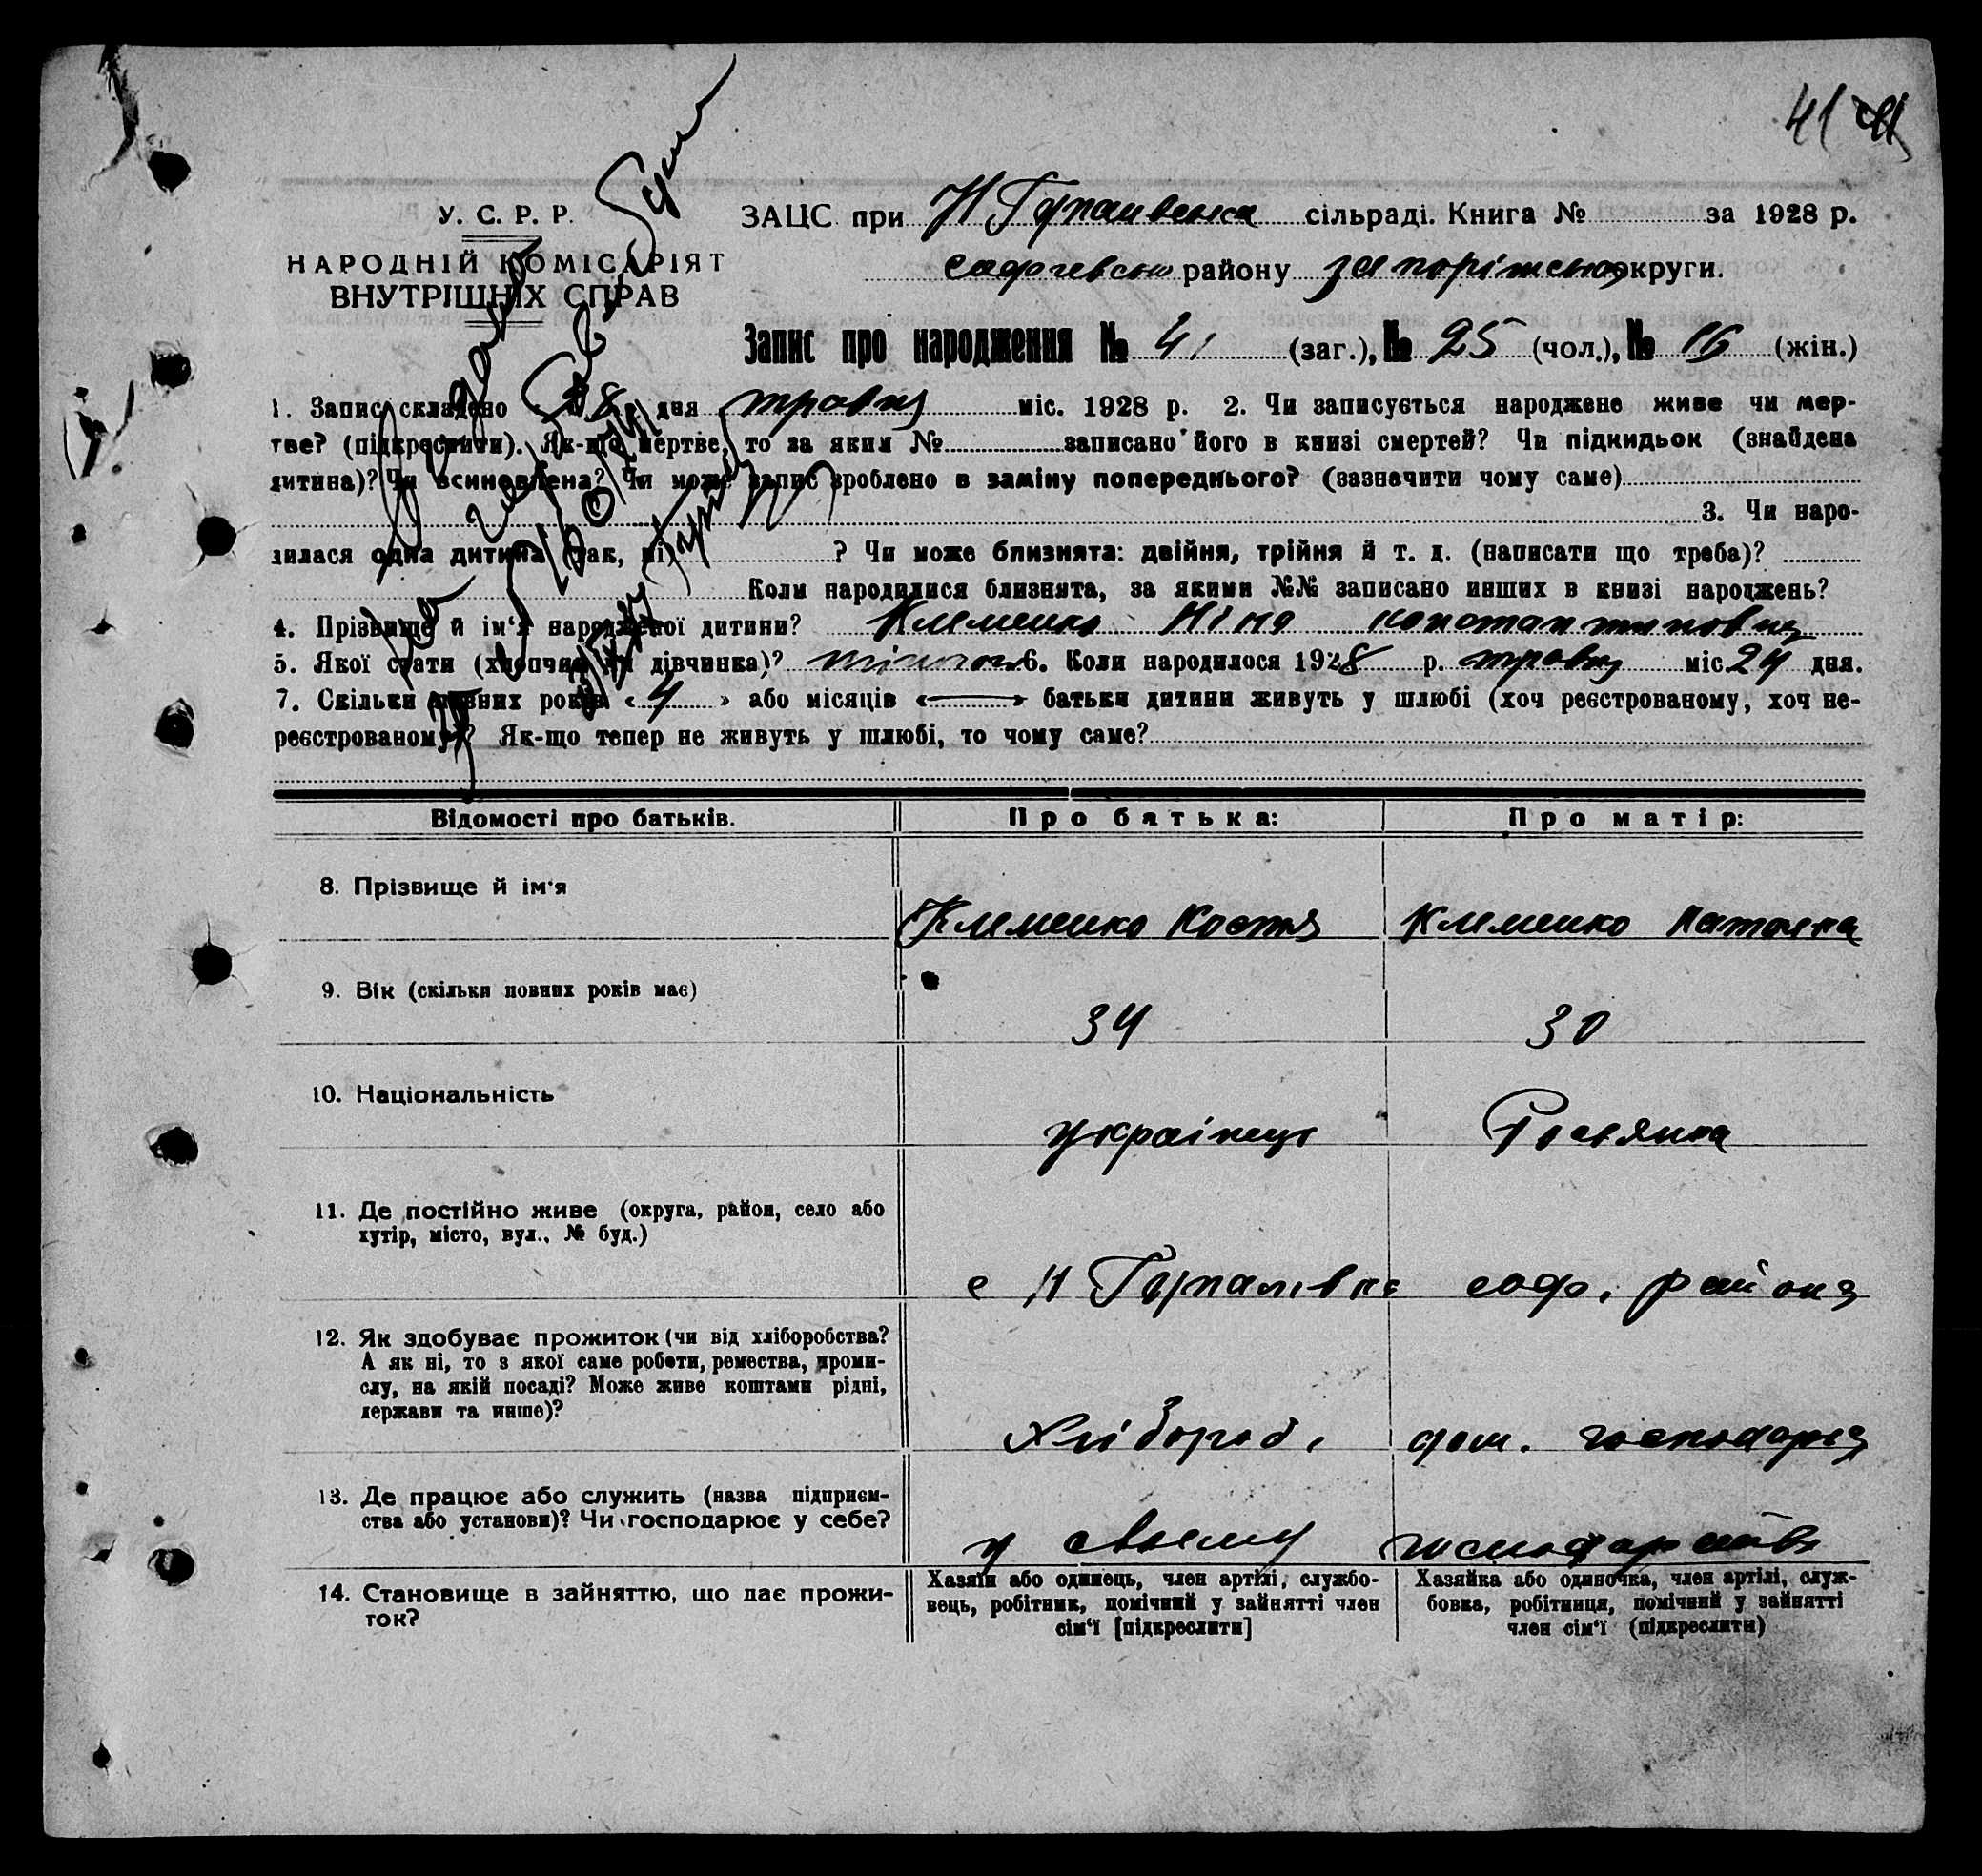 41
У. С. Р. Р.
НАРОДНІЙ КОМІСАРІЯТ
ВНУТРІШНІХ СПРАВ
ЗАЦС при сільраді. Книга № за 1928 р.
району округи.
Запис про народження № 41 (заг.), № 25 (чол.), № 16 (жін.)
1. Запис складено 28 дня травня міс. 1928 р. 2. Чи записується народжене живе чи мер-
тве? (підкреслити). Як-що мертве, то за яким № записано його в книзі смертей? Чи підкидьок (знайдена
дитина)? Чи всиновлена? Чи може запис зроблено в заміну попереднього? (зазначити чому саме)
3. Чи наро-
дилася одна дитина (так, ні) ? Чи може близнята: двійня, трійня й т. д. (написати що треба)?
Коли народилися близнята, за якими №№ записано инших в книзі народжень?
4. Прізвище й ім‘я народженої дитини? Клименко Ніна Константиновна
5. Якої стати (хлопчик чи дівчинка)? 6. Коли народилося 1928 р. травня міс. 24 дня.
7. Скільки повних років « 4 » або місяців « — » батьки дитини живуть у шлюбі (хоч реєстрованому, хоч не-
реєстрованому)? Як-що тепер не живуть у шлюбі, то чому саме?
Відомості про батьків. Про батька: Про матір:
8. Прізвище й ім‘я
Клименко Костя Клименко
9. Вік (скільки повних років має)
34 30
10. Національність
українець Росіянка
11. Де постійно живе (округа, район, село або
хутір, місто, вул., № буд.)
с Н Гупалівка соф. района
12. Як здобуває прожиток (чи від хліборобства?
А як ні, то з якої саме роботи, ремества, проми-
слу, на якій посаді? Може живе коштами рідні,
держави та инше)?
Хлібороб. дом. господарка
13. Де працює або служить (назва підприєм-
ства або установи)? Чи господарює у себе?
у своєму господарстві
14. Становище в зайняттю, що дає прожи-
ток?
Хазяїн або одинець, член артілі, службо-
вець, робітник, помічний у зайнятті член
сім‘ї [підкреслити]
Хазяйка або одиночка, член артілі, служ-
бовка, робітниця, помічний у зайнятті
член сім‘ї (підкреслити)